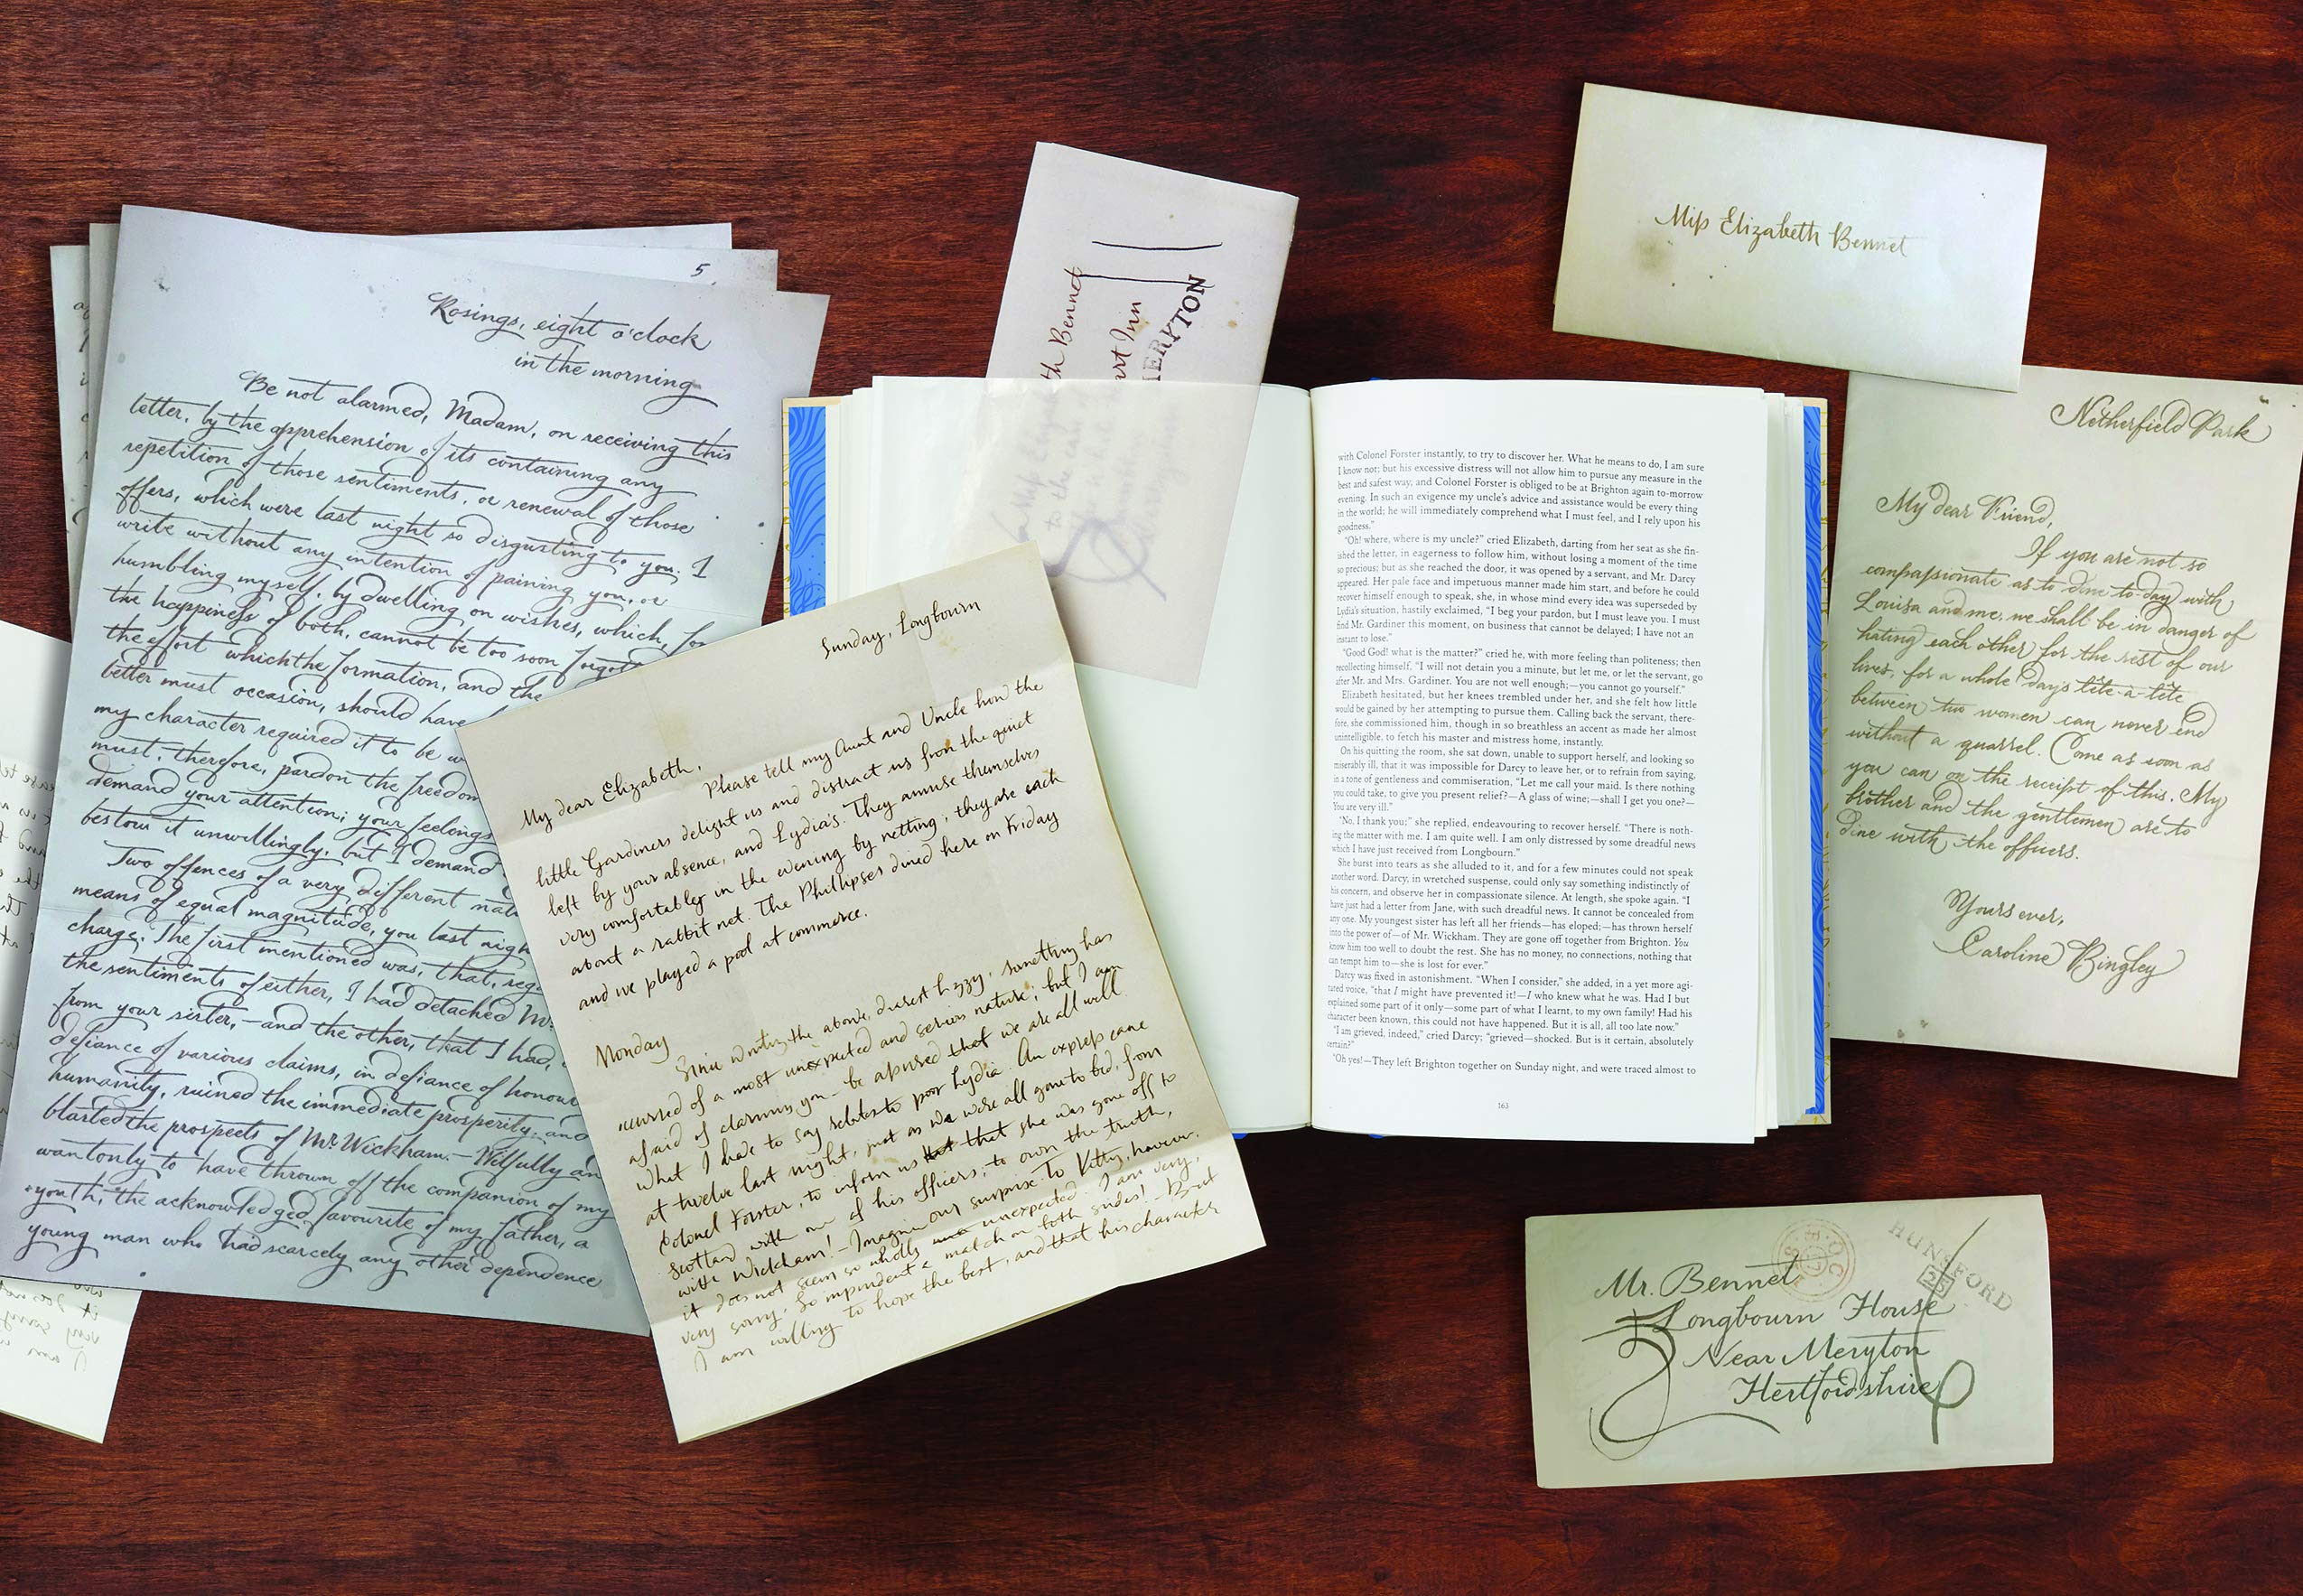 5
Rosings, eight o'clock
in the morning
Be not alarmed, Madam, on receiving this
letter, by the apprehension of its containing any
repetition of those sentiments, or renewal of those
offers, which were last night so disgusting to you. I
write without any intention of paining you, or
humbling myself, by dwelling on wishes, which, for
the happineſs of both, cannot be too soon
the effort which the formation, and the
better must occasion, should have
my character required it to be
must, therefore, pardon the freedom
demand your attention; your feelings
bestow it unwillingly, but I demand
Two offences of a very different
means of equal magnitude, you last
charge. The first mentioned was, that,
the sentiments of either, I had detached Mr.
from your sister,—and the other, that I had,
defiance of various claims, in defiance of honour
humanity, ruined the immediate prosperity, and
blasted the prospects of Mr. Wickham.—Wilfully
wantonly to have thrown off the companion of my
youth, the acknowledged favourite of my father, a
young man who had scarcely any other dependence
Sunday, Longbourn
My dear Elizabeth,
Please tell my Aunt and Uncle how the
little Gardiners delight us and distract us from the quiet
left by your absence, and Lydia's. They amuse themselves
very comfortably in the evening by netting; they are each
about a rabbit net. The Phillipses dined here on Friday
and we played a pool at commerce.
Monday
Since writing the above, dearest Lizzy, something has
occurred of a most unexpected and serious nature; but I am
afraid of alarming you—be aſsured that we are all well.
What I have to say relates to poor Lydia. An expreſs came
at twelve last night, just as we were all gone to bed, from
Colonel Forster, to inform us that that she was gone off to
Scotland with one of his officers; to own the truth,
with Wickham!—Imagine our surprise. To Kitty, however,
it does not seem so wholly unexpected. I am very,
very sorry. So imprudent a match on both sides!—But
I am willing to hope the best, and that his character
th Bennet
art Inn
MERYTON
with Colonel Forster instantly, to try to discover her. What he means to do, I am sure
I know not; but his excessive distress will not allow him to pursue any measure in the
best and safest way, and Colonel Forster is obliged to be at Brighton again to-morrow
evening. In such an exigence my uncle's advice and assistance would be every thing
in the world; he will immediately comprehend what I must feel, and I rely upon his
goodness."
"Oh! where, where is my uncle?" cried Elizabeth, darting from her seat as she fin-
ished the letter, in eagerness to follow him, without losing a moment of the time
so precious; but as she reached the door, it was opened by a servant, and Mr. Darcy
appeared. Her pale face and impetuous manner made him start, and before he could
recover himself enough to speak, she, in whose mind every idea was superseded by
Lydia's situation, hastily exclaimed, "I beg your pardon, but I must leave you. I must
find Mr. Gardiner this moment, on business that cannot be delayed; I have not an
instant to lose."
"Good God! what is the matter?" cried he, with more feeling than politeness; then
recollecting himself, "I will not detain you a minute, but let me, or let the servant, go
after Mr. and Mrs. Gardiner. You are not well enough;—you cannot go yourself."
Elizabeth hesitated, but her knees trembled under her, and she felt how little
would be gained by her attempting to pursue them. Calling back the servant, there-
fore, she commissioned him, though in so breathless an accent as made her almost
unintelligible, to fetch his master and mistress home, instantly.
On his quitting the room, she sat down, unable to support herself, and looking so
miserably ill, that it was impossible for Darcy to leave her, or to refrain from saying,
in a tone of gentleness and commiseration, "Let me call your maid. Is there nothing
you could take, to give you present relief?—A glass of wine;—shall I get you one?—
You are very ill."
"No, I thank you;" she replied, endeavouring to recover herself. "There is noth-
ing the matter with me. I am quite well. I am only distressed by some dreadful news
which I have just received from Longbourn."
She burst into tears as she alluded to it, and for a few minutes could not speak
another word. Darcy, in wretched suspense, could only say something indistinctly of
his concern, and observe her in compassionate silence. At length, she spoke again. "I
have just had a letter from Jane, with such dreadful news. It cannot be concealed from
any one. My youngest sister has left all her friends—has eloped;—has thrown herself
into the power of—of Mr. Wickham. They are gone off together from Brighton. You
know him too well to doubt the rest. She has no money, no connections, nothing that
can tempt him to—she is lost for ever."
Darcy was fixed in astonishment. "When I consider," she added, in a yet more agi-
tated voice, "that I might have prevented it!—I who knew what he was. Had I but
explained some part of it only—some part of what I learnt, to my own family! Had his
character been known, this could not have happened. But it is all, all too late now."
"I am grieved, indeed," cried Darcy; "grieved—shocked. But is it certain, absolutely
certain?"
"Oh yes!—They left Brighton together on Sunday night, and were traced almost to
163
Miſs Elizabeth Bennet
Netherfield Park
My dear Friend,
If you are not so
compaſsionate as to dine to-day with
Louisa and me, we shall be in danger of
hating each other for the rest of our
lives, for a whole day's tête-à-tête
between two women can never end
without a quarrel. Come as soon as
you can on the receipt of this. My
brother and the gentlemen are to
dine with the officers.
Yours ever,
Caroline Bingley
HUNSFORD
23
Mr. Bennet
Longbourn House
Near Meryton
Hertfordshire